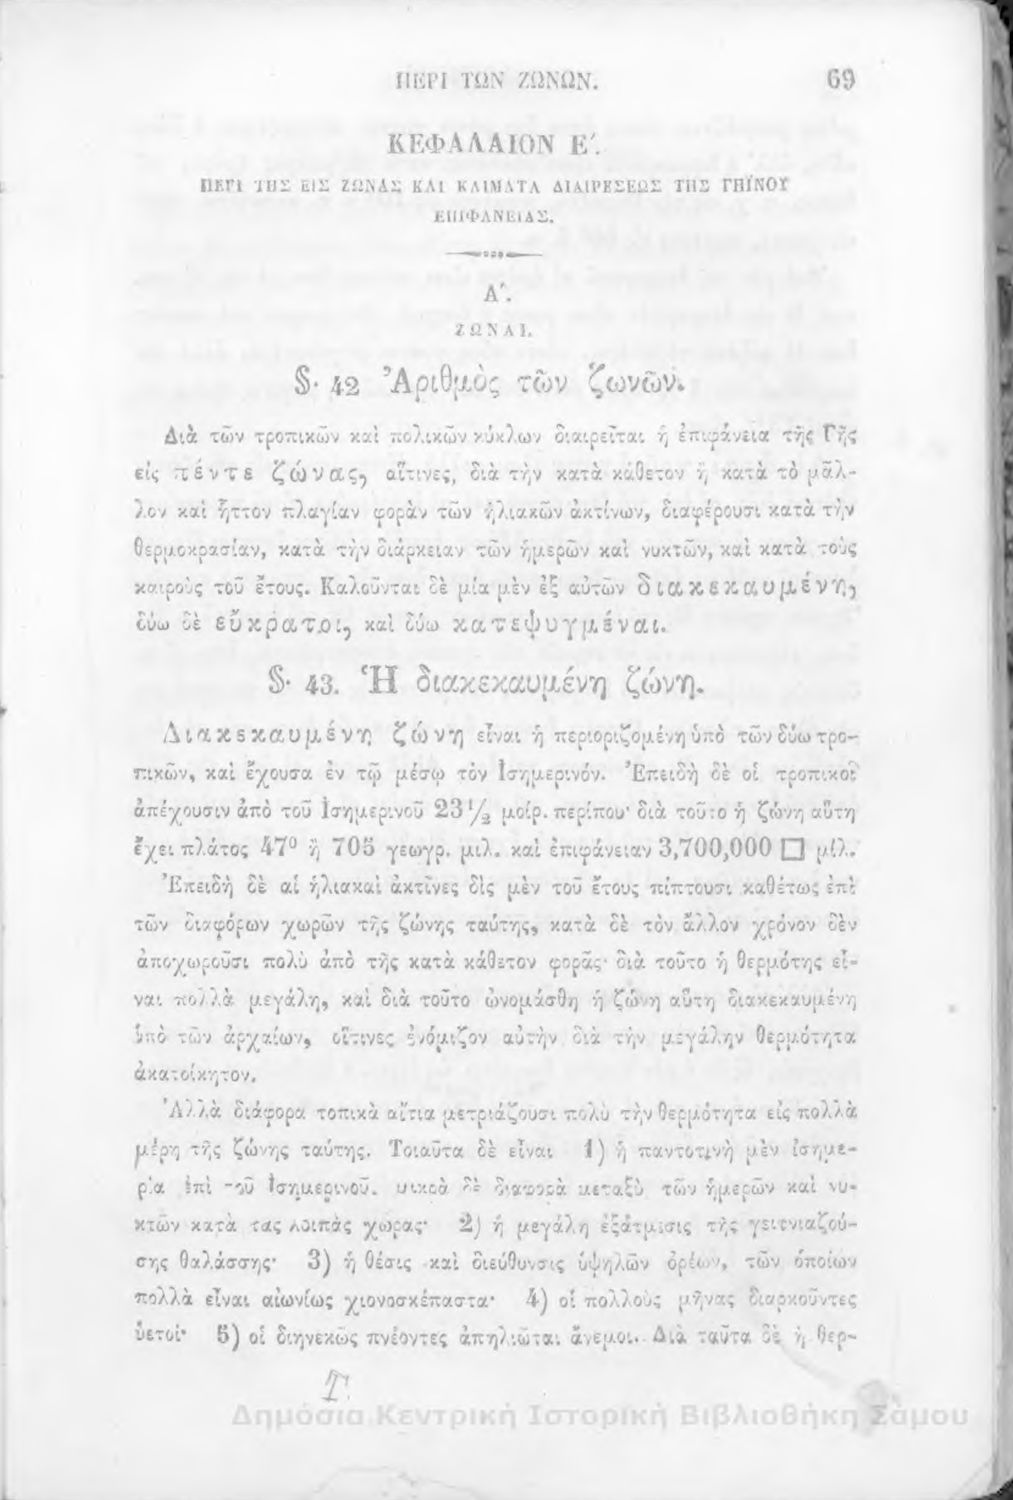 ΠΕΡΙ ΤΩΝ ΖΩΝΩΝ. 69
ΚΕΦΑΛΑΙΟΝ Ε΄.
ΠΕΡΙ ΤΗΣ ΕΙΣ ΖΩΝΑΣ ΚΑΙ ΚΛΙΜΑΤΑ ΔΙΑΙΡΕΣΕΩΣ ΤΗΣ ΓΗΪΝΟΥ
ΕΠΙΦΑΝΕΙΑΣ.
Α΄.
ΖΩΝΑΙ.
§. 42 Ἀριθμὸς τῶν ζωνῶν.
Διὰ τῶν τροπικῶν καὶ πολικῶν κύκλων διαιρεῖται ἡ ἐπιφάνεια τῆς Γῆς
εἰς πέντε ζώνας, αἵτινες, διὰ τὴν κατὰ κάθετον ἢ κατὰ τὸ μᾶλ-
λον καὶ ἧττον πλαγίαν φορὰν τῶν ἡλιακῶν ἀκτίνων, διαφέρουσι κατὰ τὴν
θερμοκρασίαν, κατὰ τὴν διάρκειαν τῶν ἡμερῶν καὶ νυκτῶν, καὶ κατὰ τοὺς
καιροὺς τοῦ ἔτους. Καλοῦνται δὲ μία μὲν ἐξ αὐτῶν διακεκαυμένη,
δύω δὲ εὔκρατοι, καὶ δύω κατεψυγμέναι.
§. 43. Ἡ διακεκαυμένη ζώνη.
Διακεκαυμένη ζώνη εἶναι ἡ περιοριζομένη ὑπὸ τῶν δύω τρο-
πικῶν, καὶ ἔχουσα ἐν τῷ μέσῳ τὸν Ἰσημερινόν. Ἐπειδὴ δὲ οἱ τροπικοὶ
ἀπέχουσιν ἀπὸ τοῦ Ἰσημερινοῦ 23 1/2 μοίρ. περίπου· διὰ τοῦτο ἡ ζώνη αὕτη
ἔχει πλάτος 47° ἢ 705 γεωγρ. μιλ. καὶ ἐπιφάνειαν 3,700,000 □ μίλ.
Ἐπειδὴ δὲ αἱ ἡλιακαὶ ἀκτῖνες δὶς μὲν τοῦ ἔτους πίπτουσι καθέτως ἐπὶ
τῶν διαφόρων χωρῶν τῆς ζώνης ταύτης, κατὰ δὲ τὸν ἄλλον χρόνον δὲν
ἀποχωροῦσι πολὺ ἀπὸ τῆς κατὰ κάθετον φορᾶς· διὰ τοῦτο ἡ θερμότης εἶ-
ναι πολλὰ μεγάλη, καὶ διὰ τοῦτο ὠνομάσθη ἡ ζώνη αὕτη διακεκαυμένη
ὑπὸ τῶν ἀρχαίων, οἵτινες ἐνόμιζον αὐτὴν διὰ τὴν μεγάλην θερμότητα
ἀκατοίκητον.
Ἀλλὰ διάφορα τοπικὰ αἴτια μετριάζουσι πολὺ τὴν θερμότητα εἰς πολλὰ
μέρη τῆς ζώνης ταύτης. Τοιαῦτα δὲ εἶναι 1) ἡ παντοτινὴ μὲν ἰσημε-
ρία ἐπὶ τοῦ Ἰσημερινοῦ, μικρὰ δὲ διαφορὰ μεταξὺ τῶν ἡμερῶν καὶ νυ-
κτῶν κατὰ τὰς λοιπὰς χώρας· 2) ἡ μεγάλη ἐξάτμισις τῆς γειτνιαζού-
σης θαλάσσης· 3) ἡ θέσις καὶ διεύθυνσις ὑψηλῶν ὀρέων, τῶν ὁποίων
πολλὰ εἶναι αἰωνίως χιονοσκέπαστα· 4) οἱ πολλοὺς μῆνας διαρκοῦντες
ὑετοί· 5) οἱ διηνεκῶς πνέοντες ἀπηλιῶται ἄνεμοι. Διὰ ταῦτα δὲ ἡ θερ-
Δημόσια Κεντρική Ιστορική Βιβλιοθήκη Σάμου